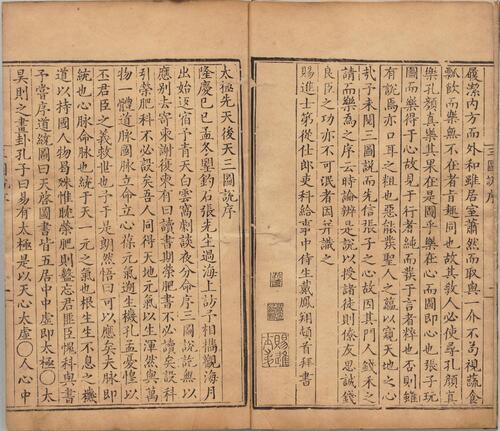 履潔內方而外和雖居室蕭然而取與一介不苟視蔬食
瓢飲而樂無不在者音趣同也故其教人必使尋孔顏真
樂孔顏真樂其果在是圖乎樂在心而圖即心也張子玩
圖而樂得于心故見于行者純而發于言者粹也否則雖
有說焉亦口耳之粗也惡能發聖人之蘊以窺天地之心
㢤子未閱三圖說而先信張子之心故因其門人錢禾之
請而樂為之序云時論辨是說以授諸徒則僚友思誠錢
良臣之功亦不可泯者因并識之
賜進士第從仕郎吏科給事中侍生戴鳳翔頓首拜書
三圖說序
太極先天後天三圖說序
隆慶己巳孟冬墅釣石張先生過海上訪予相攜觀海月
出始返宿予青天白雲窩劇談夜分命序三圖說說無以
應別去寄柬謝復柬有曰讀書期榮肥書不必讀矣設科
引榮肥科不必設矣吾人同得天地元氣以生渾然與萬
物一體道脈國脈立命立心葆元氣迺生機孔孟憂惶以
丕君臣之義救世也予于是朗然悟曰可以應矣天脈即
統也心脈命脈也統于天一元之氣也根生生不息之機
道以持國人物易殊惟睫榮肥則鑿忘君匪臣愧科與書
予嘗序道統圖曰天啓圖書皆五居中中虛即太極○太
昊則之畫卦孔子曰易有太極是以天心太虛○人心中